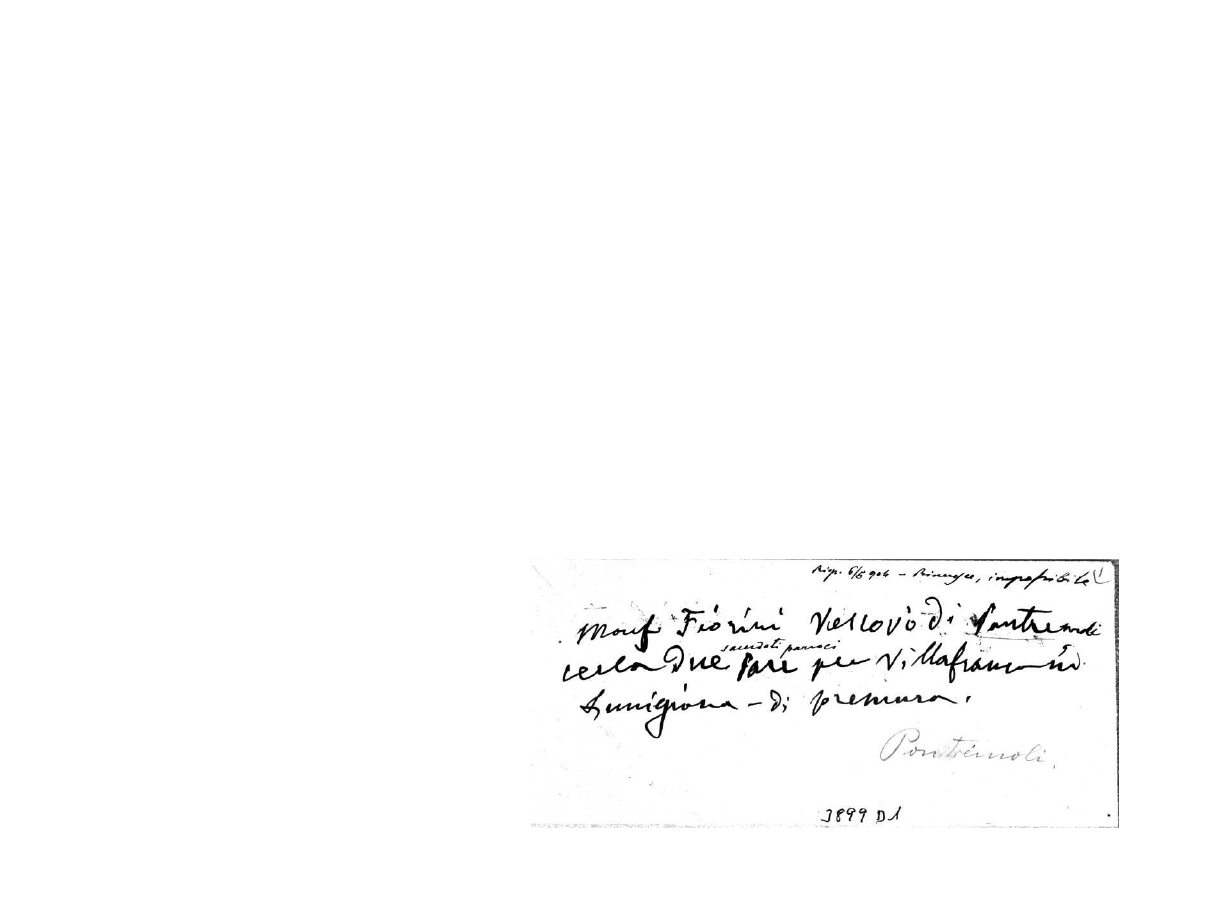 Risp. 6/5 904 - Rincresce, impossibile
Mons Fiorini Vescovo di Pontremoli
sacerdoti parroci
cerca due per Villafranca in
Lunigiana - di premura.
Pontremoli.
3899 D1